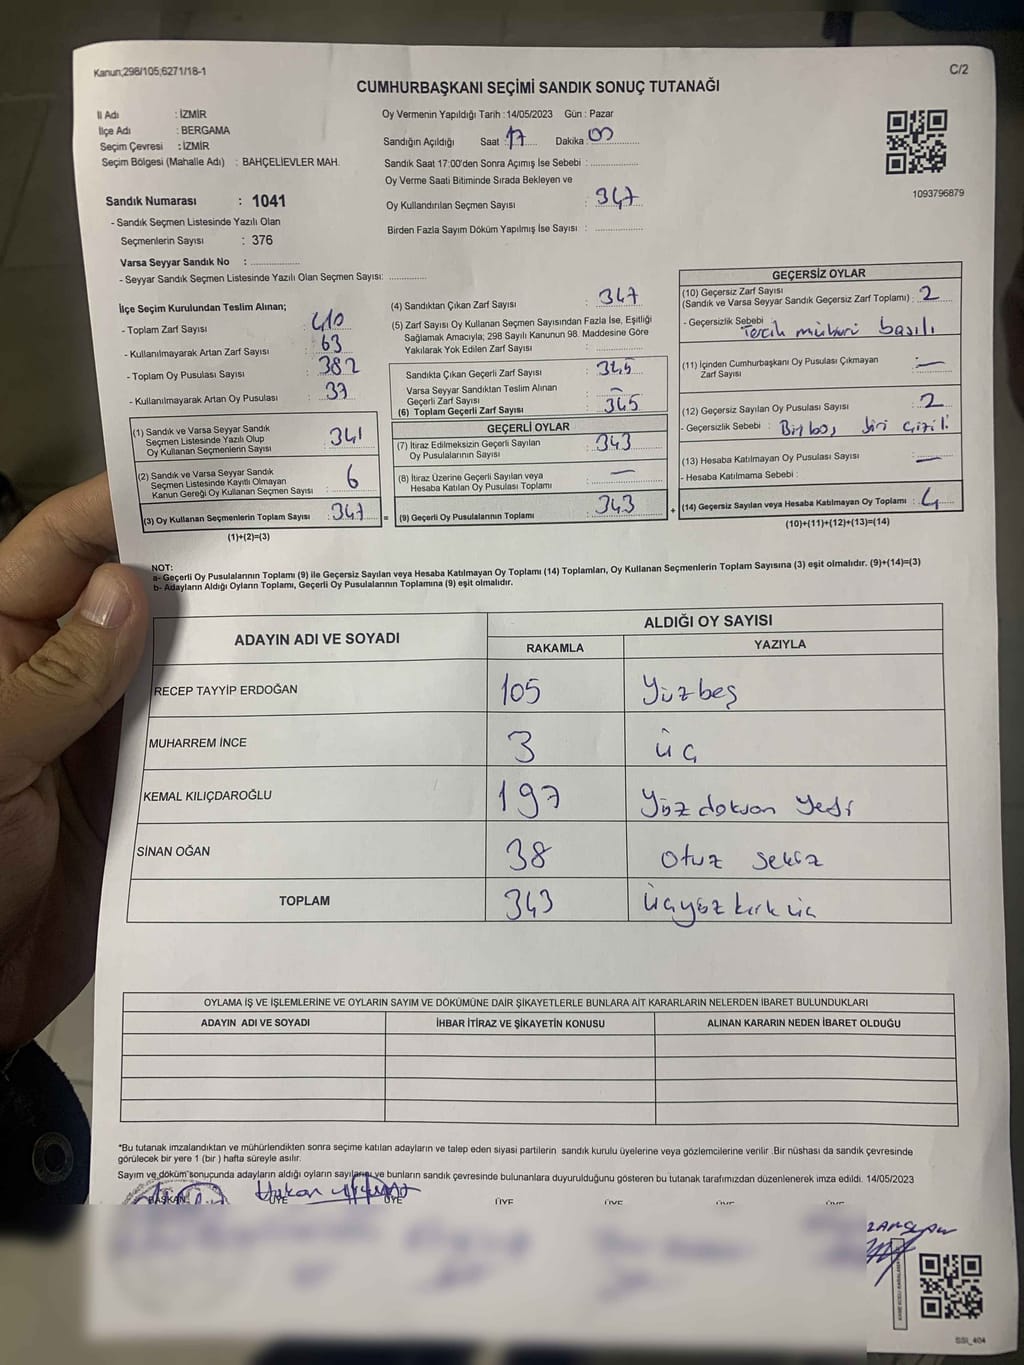 Kanun;298/105;6271/18-1
C/2
CUMHURBAŞKANI SEÇİMİ SANDIK SONUÇ TUTANAĞI
İl Adı : İZMİR
İlçe Adı : BERGAMA
Seçim Çevresi : İZMİR
Seçim Bölgesi (Mahalle Adı) : BAHÇELİEVLER MAH.
Sandık Numarası : 1041
- Sandık Seçmen Listesinde Yazılı Olan
Seçmenlerin Sayısı : 376
Varsa Seyyar Sandık No : ..............
- Seyyar Sandık Seçmen Listesinde Yazılı Olan Seçmen Sayısı: ............
Oy Vermenin Yapıldığı Tarih : 14/05/2023 Gün : Pazar
Sandığın Açıldığı Saat : 17 Dakika : 00
Sandık Saat 17:00'den Sonra Açımış İse Sebebi : ................
Oy Verme Saati Bitiminde Sırada Bekleyen ve
Oy Kullandırılan Seçmen Sayısı : 347
Birden Fazla Sayım Döküm Yapılmış İse Sayısı : ..............
1093796879
İlçe Seçim Kurulundan Teslim Alınan;
- Toplam Zarf Sayısı : 410
- Kullanılmayarak Artan Zarf Sayısı : 63
- Toplam Oy Pusulası Sayısı : 382
- Kullanılmayarak Artan Oy Pusulası : 37
(1) Sandık ve Varsa Seyyar Sandık
Seçmen Listesinde Yazılı Olup
Oy Kullanan Seçmenlerin Sayısı : 341
(2) Sandık ve Varsa Seyyar Sandık
Seçmen Listesinde Kayıtlı Olmayan
Kanun Gereği Oy Kullanan Seçmen Sayısı : 6
(3) Oy Kullanan Seçmenlerin Toplam Sayısı : 347
(1)+(2)=(3)
=
(4) Sandıktan Çıkan Zarf Sayısı : 347
(5) Zarf Sayısı Oy Kullanan Seçmen Sayısından Fazla İse, Eşitliği
Sağlamak Amacıyla; 298 Sayılı Kanunun 98. Maddesine Göre
Yakılarak Yok Edilen Zarf Sayısı : ..............
Sandıkta Çıkan Geçerli Zarf Sayısı : 345
Varsa Seyyar Sandıktan Teslim Alınan
Geçerli Zarf Sayısı : —
(6) Toplam Geçerli Zarf Sayısı : 345
GEÇERLİ OYLAR
(7) İtiraz Edilmeksizin Geçerli Sayılan
Oy Pusulalarının Sayısı : 343
(8) İtiraz Üzerine Geçerli Sayılan veya
Hesaba Katılan Oy Pusulası Toplamı : —
(9) Geçerli Oy Pusulalarının Toplamı : 343
+
GEÇERSİZ OYLAR
(10) Geçersiz Zarf Sayısı
(Sandık ve Varsa Seyyar Sandık Geçersiz Zarf Toplamı) : 2
- Geçersizlik Sebebi : Tercih mühürü basılı
(11) İçinden Cumhurbaşkanı Oy Pusulası Çıkmayan
Zarf Sayısı : —
(12) Geçersiz Sayılan Oy Pusulası Sayısı : 2
- Geçersizlik Sebebi : Biri boş, biri çizili
(13) Hesaba Katılmayan Oy Pusulası Sayısı : —
- Hesaba Katılmama Sebebi :
(14) Geçersiz Sayılan veya Hesaba Katılmayan Oy Toplamı : 4
(10)+(11)+(12)+(13)=(14)
NOT:
a- Geçerli Oy Pusulalarının Toplamı (9) ile Geçersiz Sayılan veya Hesaba Katılmayan Oy Toplamı (14) Toplamları, Oy Kullanan Seçmenlerin Toplam Sayısına (3) eşit olmalıdır. (9)+(14)=(3)
b- Adayların Aldığı Oyların Toplamı, Geçerli Oy Pusulalarının Toplamına (9) eşit olmalıdır.
ADAYIN ADI VE SOYADI
ALDIĞI OY SAYISI
RAKAMLA YAZIYLA
RECEP TAYYİP ERDOĞAN 105 Yüzbeş
MUHARREM İNCE 3 üç
KEMAL KILIÇDAROĞLU 197 Yüz doksan yedi
SİNAN OĞAN 38 otuz sekiz
TOPLAM 343 üçyüz kırk üç
OYLAMA İŞ VE İŞLEMLERİNE VE OYLARIN SAYIM VE DÖKÜMÜNE DAİR ŞİKAYETLERLE BUNLARA AİT KARARLARIN NELERDEN İBARET BULUNDUKLARI
ADAYIN ADI VE SOYADI İHBAR İTİRAZ VE ŞİKAYETİN KONUSU ALINAN KARARIN NEDEN İBARET OLDUĞU
*Bu tutanak imzalandıktan ve mühürlendikten sonra seçime katılan adayların ve talep eden siyasi partilerin sandık kurulu üyelerine veya gözlemcilerine verilir .Bir nüshası da sandık çevresinde
görülecek bir yere 1 (bir ) hafta süreyle asılır.
Sayım ve döküm sonuçunda adayların aldığı oyların sayıları ve bunların sandık çevresinde bulunanlara duyurulduğunu gösteren bu tutanak tarafımızdan düzenlenerek imza edildi. 14/05/2023
BAŞKAN ÜYE ÜYE ÜYE ÜYE ÜYE ÜYE
SSİ_404